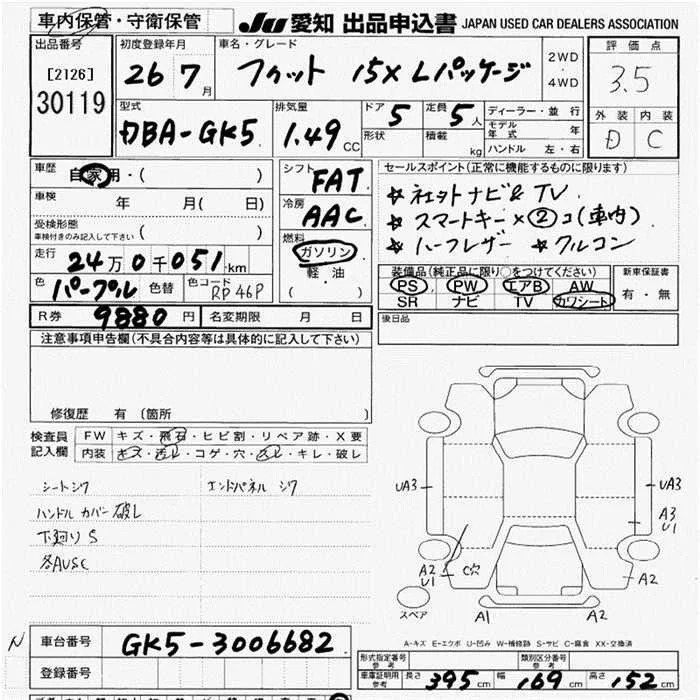 車内保管・守衛保管 JU 愛知 出品申込書 JAPAN USED CAR DEALERS ASSOCIATION
出品番号 初度登録年月 車名・グレード 評価点
[2126] 26 7月 フィット 15X Lパッケージ 2WD・4WD 3.5
30119
型式 排気量 ドア 定員 ディーラー・並行 外装 内装
DBA-GK5 1.49CC 5 5人 モデル年式 年 D C
形状 積載 kg ハンドル 左・右
車歴 自家用・( ) シフト FAT セールスポイント(正常に機能するものに限ります)
車検 年 月( 日) 冷房 AAC ☆ 社外ナビ& TV
受検形態 ☆ スマートキー×②コ(車内)
車検付きのみ記入して下さい ( ) 燃料 ガソリン・軽油 ( ) ☆ ハーフレザー ☆ クルコン
走行 24万0千051km
装備品(純正品に限り○をつけてください) 新車保証書
色 パープル 色替 色コード RP46P PS PW エアB AW 有・無
SR ナビ TV カワシート
R券 9880円 名変期限 月 日 後日品
注意事項申告欄(不具合内容等は具体的に記入して下さい)
修復歴 有 (箇所 )
検査員記入欄 FW キズ・飛石・ヒビ割・リペア跡・X要
内装 キズ・汚レ・コゲ・穴・ムレ・キレ・破レ
シートシワ エンドパネル シワ
ハンドル カバー 破レ
下廻り S
各AUSC
UA3 UA3
A3
U1
A2
U1 C穴 A2
スペア A1 A2
A-キズ E-エクボ U-凹み W-補修跡 S-サビ C-腐食 XX-交換済
N 車台番号 GK5-3006682
登録番号
形式指定番号 参考 類別区分番号 参考
車庫証明用 参考 長さ 395cm 幅 169cm 高さ 152cm